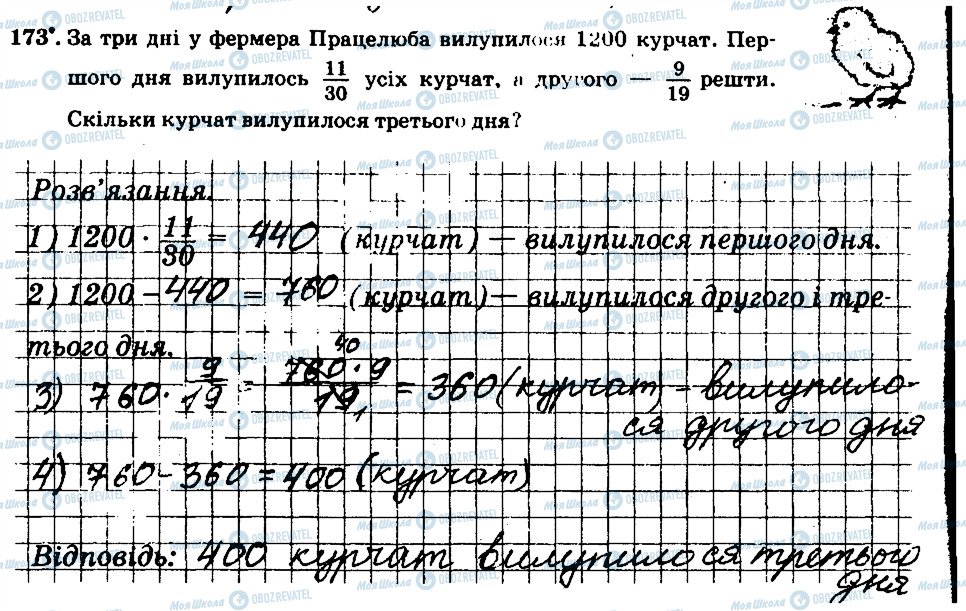 173°. За три дні у фермера Працелюба вилупилося 1200 курчат. Пер-
шого дня вилупилось 11/30 усіх курчат, а другого — 9/19 решти.
Скільки курчат вилупилося третього дня?
Розв'язання.
1) 1200 · 11/30 = 440 (курчат) — вилупилося першого дня.
2) 1200 − 440 = 760 (курчат) — вилупилося другого і тре-
тього дня.
3) 760 · 9/19 = 760 40 · 9/19 1 = 360 (курчат) – вилупило-
ся другого дня
4) 760 – 360 = 400 (курчат)
Відповідь: 400 курчат вилупилося третього
дня